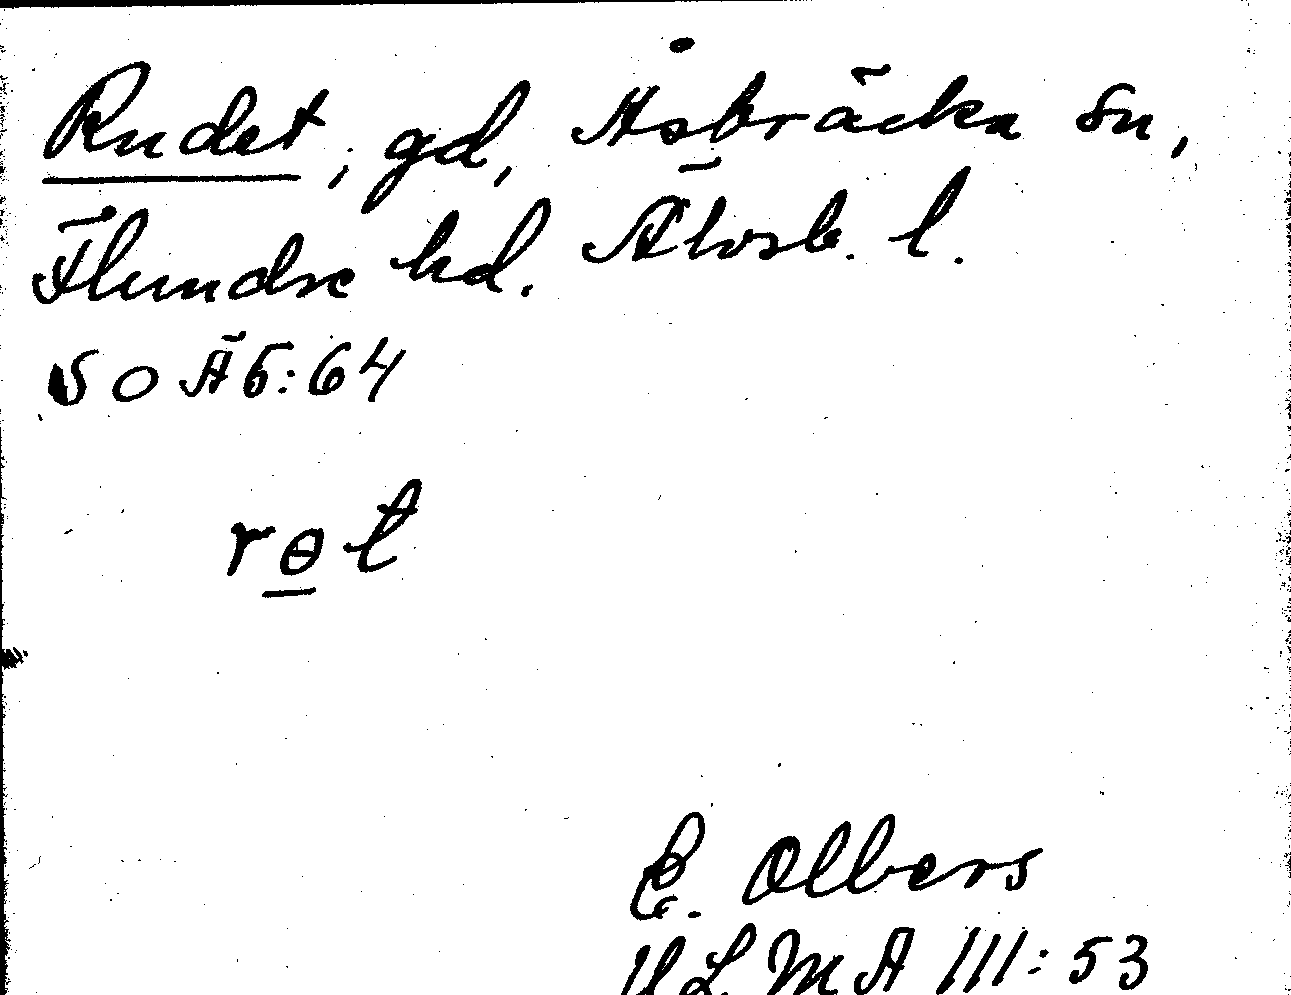 Rudet, gd, Åsbräcka sn,
Flundre hd. Älvsb. l.
SOÄ 5:64
rɵt
E. Olbers
ULMA 111:53